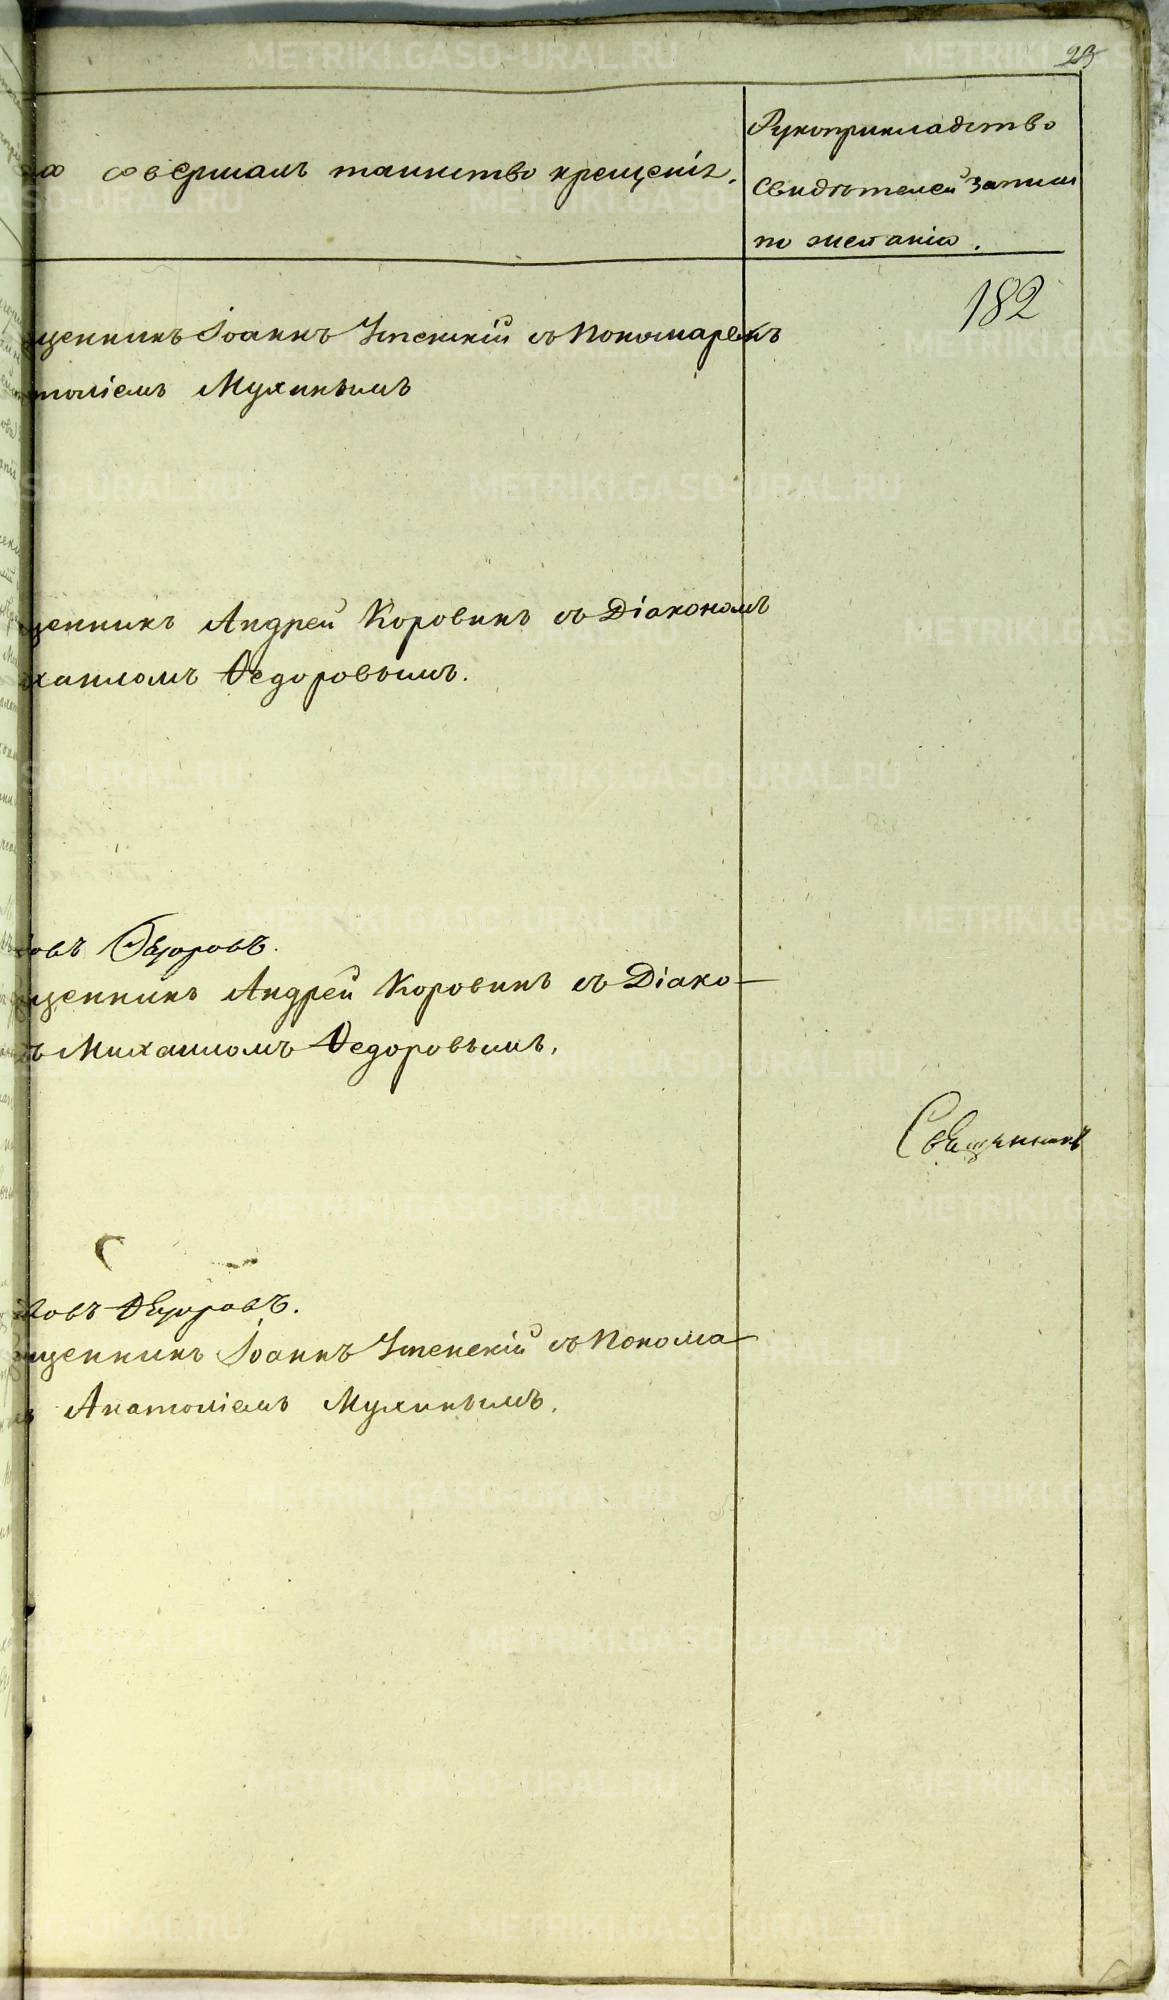 23
совершалъ таинство крещенія.
Рукоприкладство
свидѣтелей записи
по желанію.
182
щенникъ Іоаннъ Успенскій съ Пономаремъ
толіемъ Мухинымъ
щенникъ Андрей Коровинъ съ Діакономъ
хаиломъ Ѳедоровымъ.
овъ Ѳедоровъ.
щенникъ Андрей Коровинъ съ Діако-
ъ Михаиломъ Ѳедоровымъ.
Священникъ
ковъ Ѳедоровъ.
щенникъ Іоаннъ Успенскій съ Понома
Анатоліемъ Мухинымъ.
METRIKI.GASO-URAL.RU